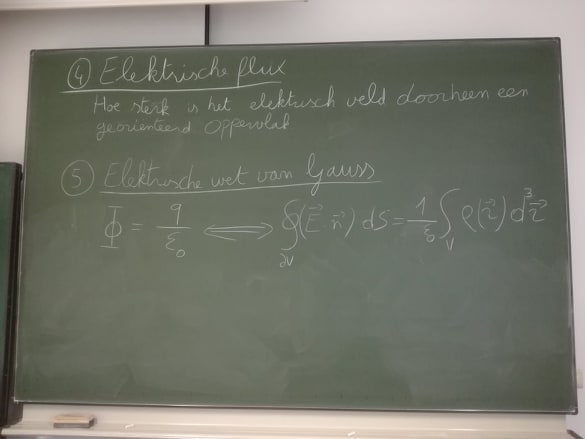 ④ Elektrische flux
Hoe sterk is het elektrisch veld doorheen een
georienteerd oppervlak
⑤ Elektrische wet van Gauss
Φ = q/ε₀ ⟺ ∮_∂V (E⃗·n⃗) dS = 1/ε₀ ∫_V ρ(r⃗) d³r⃗